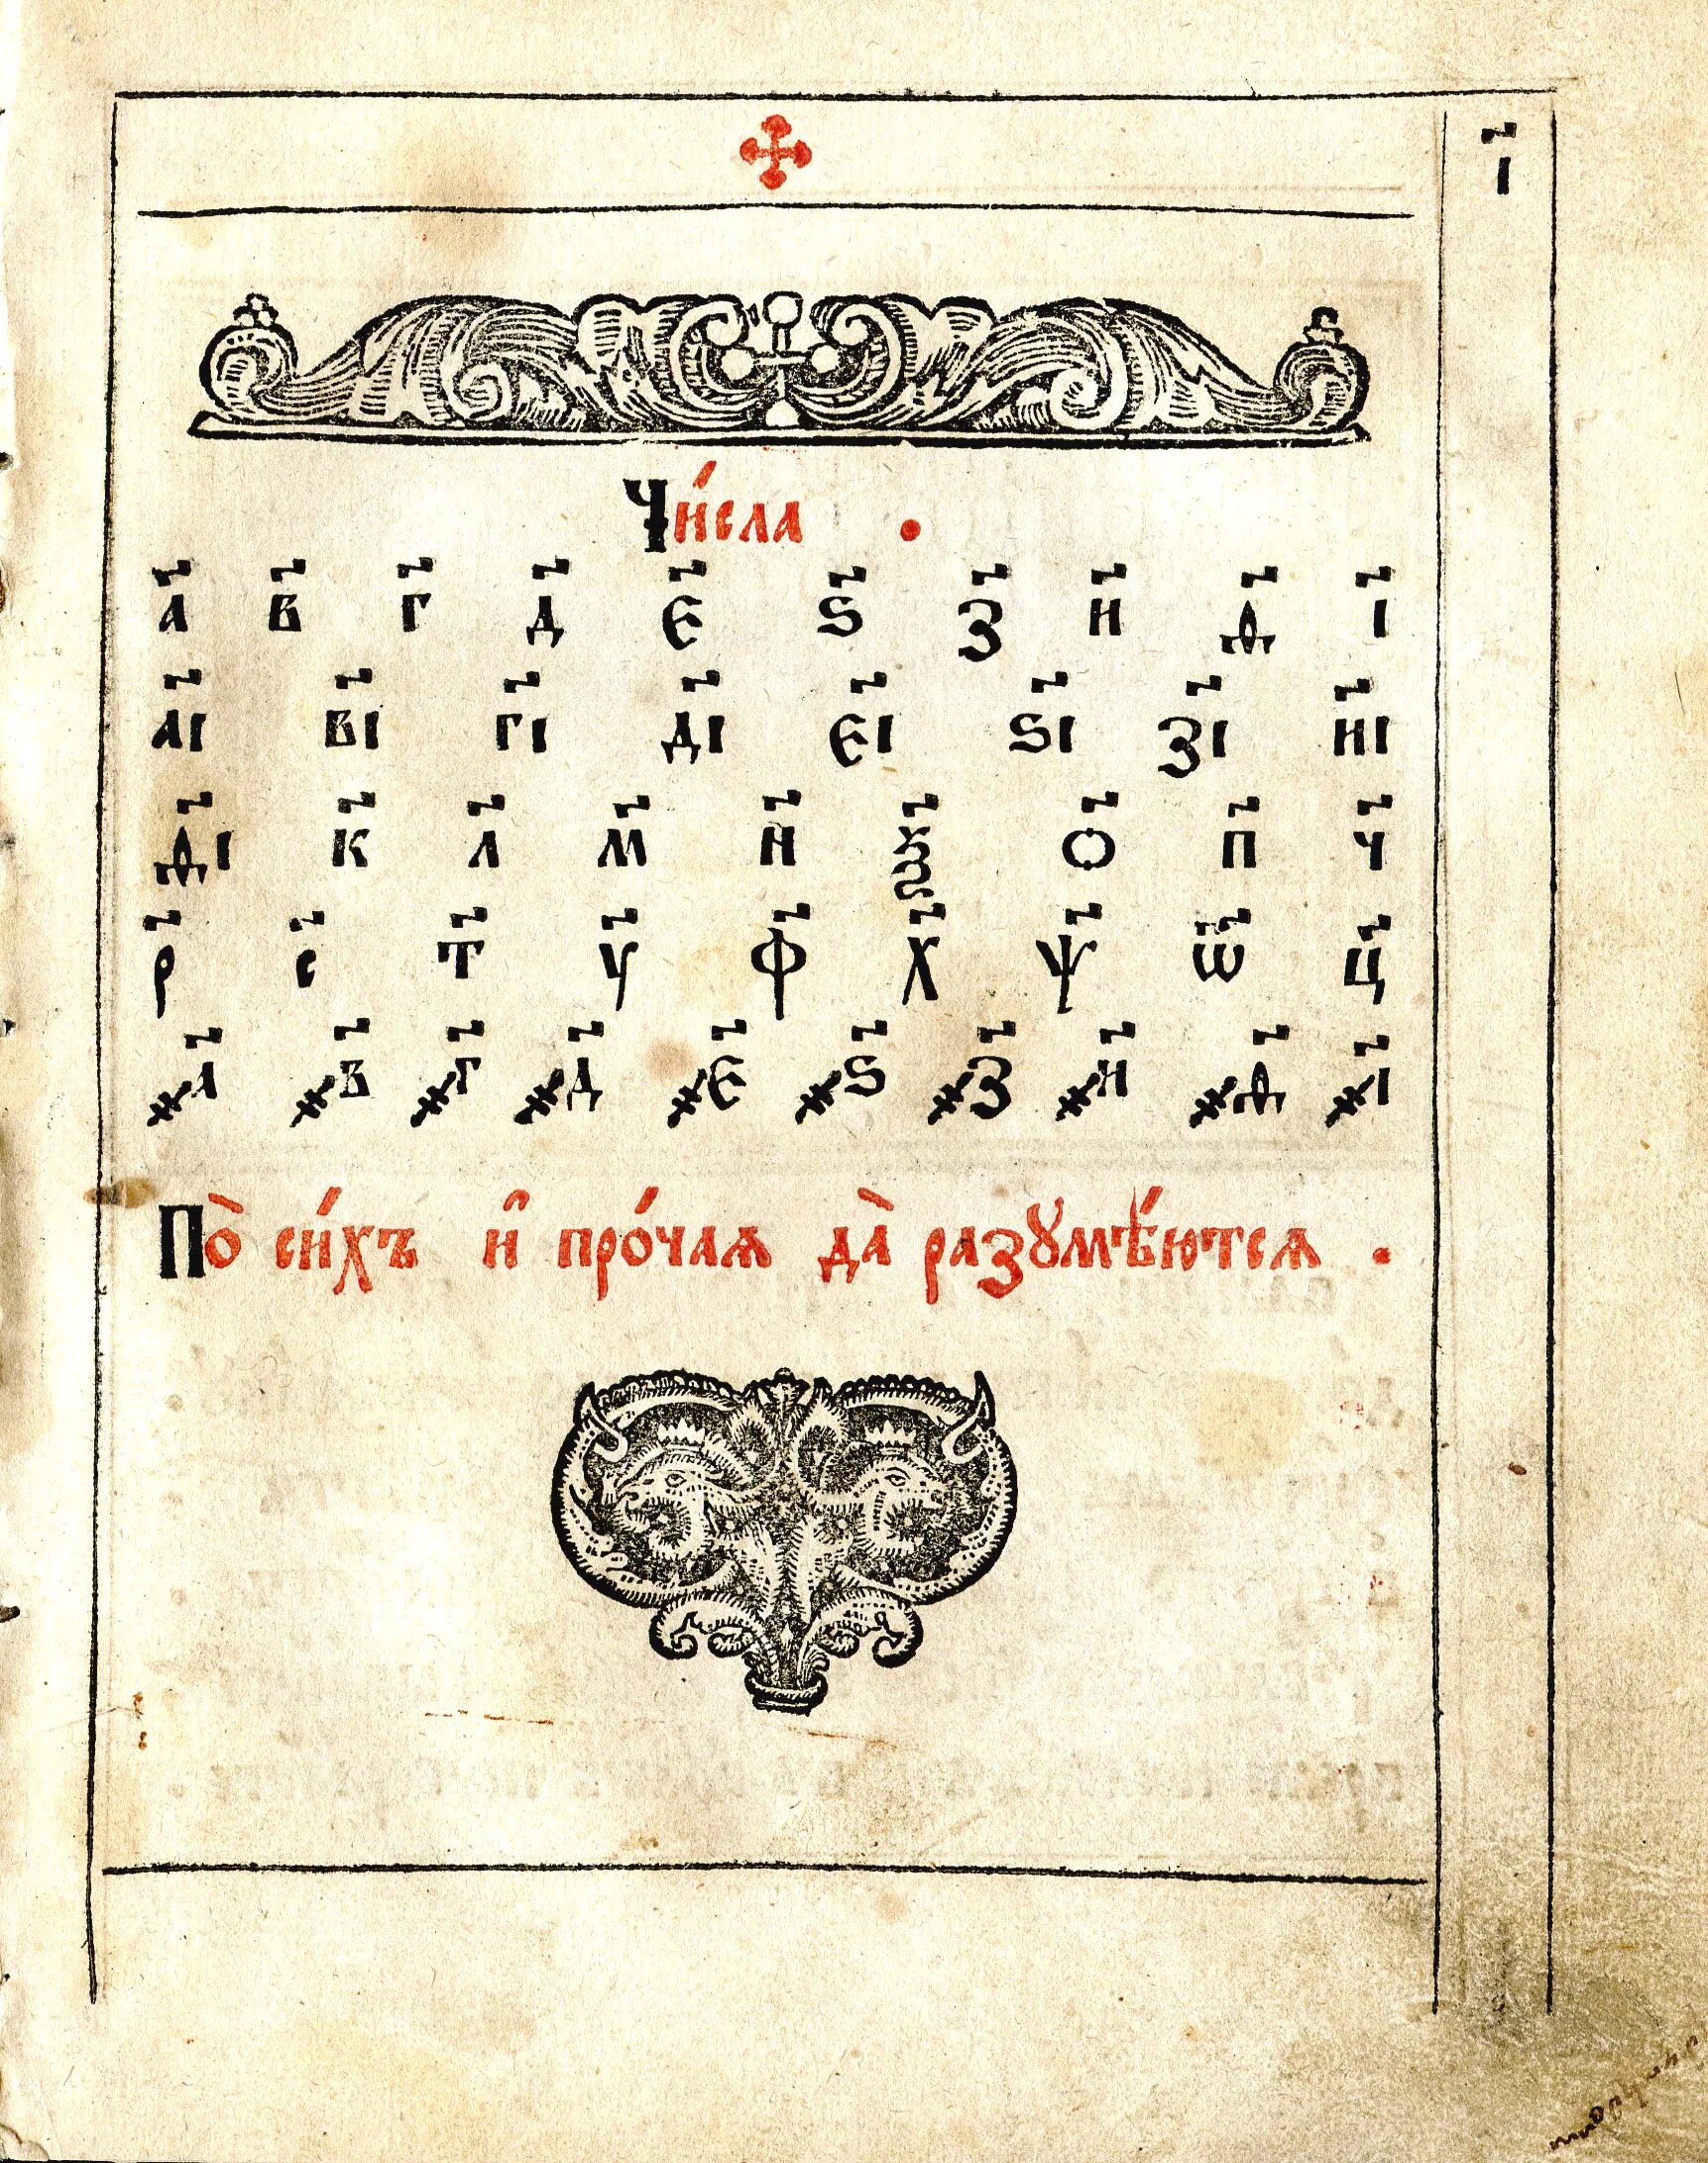 І҃
Чи́сла .
А҃ В҃ Г҃ Д҃ Є҃ Ѕ҃ З҃ И҃ Ѳ҃ І҃
А҃І В҃І Г҃І Д҃І Є҃І Ѕ҃І З҃І И҃І
Ѳ҃І К҃ Л҃ М҃ Н҃ Ѯ҃ О҃ П҃ Ч҃
Р҃ С҃ Т҃ У҃ Ф҃ Х҃ Ѱ҃ Ѿ҃ Ц҃
҂А҃ ҂В҃ ҂Г҃ ҂Д҃ ҂Є҃ ҂Ѕ҃ ҂З҃ ҂И҃ ҂Ѳ҃ ҂І҃
По̀ си́хъ и҆ про́чаѧ да̀ разꙋмѣ́ютсѧ .